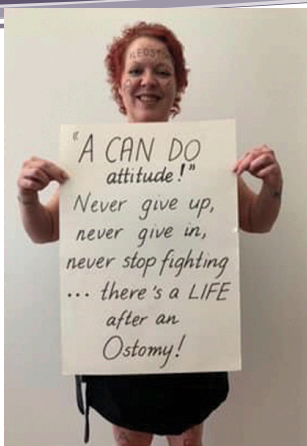 "A CAN DO
attitude!"
Never give up,
never give in,
never stop fighting
... there's a LIFE
after an
Ostomy!